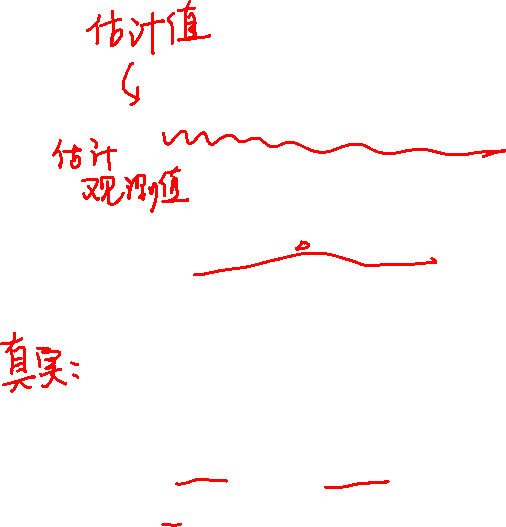 估计值
估计
观测值
真实: